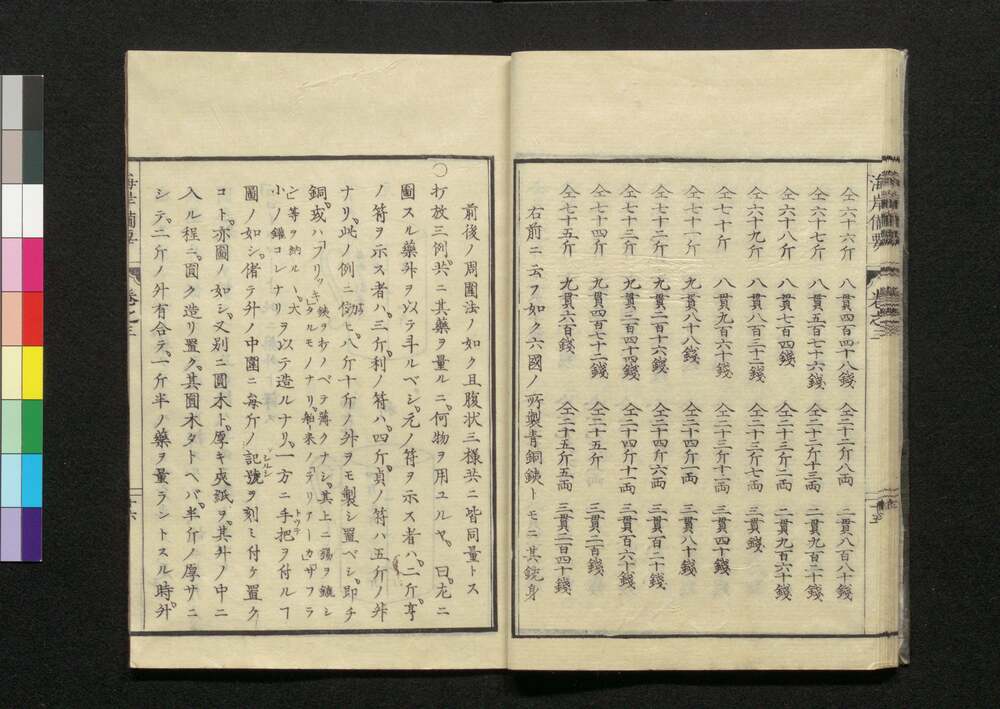 仝六十六斤 八貫四百四十八錢 仝二十二斤八両 二貫八百八十錢
仝六十七斤 八貫五百七十六錢 仝二十二斤十三両 二貫九百二十錢
仝六十八斤 八貫七百四錢 仝二十三斤二両 二貫九百六十錢
仝六十九斤 八貫八百三十二錢 仝二十三斤七両 三貫錢
仝七十斤 八貫九百六十錢 仝二十三斤十二両 三貫四十錢
仝七十一斤 九貫八十八錢 仝二十四斤一両 三貫八十錢
仝七十二斤 九貫二百十六錢 仝二十四斤六両 三貫百二十錢
仝七十三斤 九貫三百四十四錢 仝二十四斤十一両 三貫百六十錢
仝七十四斤 九貫四百七十二錢 仝二十五斤 三貫二百錢
仝七十五斤 九貫六百錢 仝二十五斤五両 三貫二百四十錢
右前ニ云フ如ク六國ノ所製青銅銕トモニ其銃身
前後ノ周圍法ノ如ク且腹状三樣共ニ皆同量トス
〇打放三例共ニ其藥ヲ量ルニ何物ヲ用ユルヤ曰左ニ
圖スル藥舛ヲ以テ斗ルベシ元ノ符ヲ示ス者ハ二斤亨
ノ符ヲ示ス者ハ三斤利ノ符ハ四斤貞ノ符ハ五斤ノ舛
ナリ此ノ例ニ傚ヒ八斤十斤ノ舛ヲモ製シ置ベシ即チ
銅或ハブリッキ 銕ヲ打ノベテ薄クナシ其上ニ錫ヲ鍍シタルモノナリ舶来ノ
等ヲ以テ造ルナリ一方ニ手把ヲ付ル
圖ノ如シ偖テ舛ノ中圍ニ每斤ノ記號ヲ刻ミ付ケ置ク
コト亦圖ノ如シ又別ニ圓木ト厚キ夾紙ヲ其舛ノ中ニ
入ル程ニ圓ク造リ置ク其圓木タトヘバ半斤ノ厚サニ
シテ二斤ノ外有合テ一斤半ノ藥ヲ量ラントスル時舛